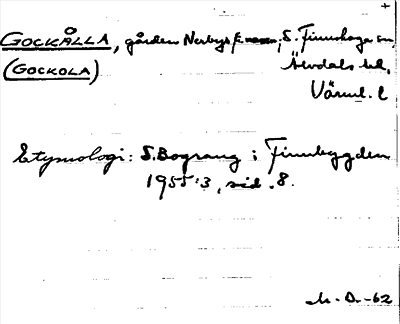 +
GOCKÅLLA, gården Nerbyn, S. Finnskoga sn,
(GOCKOLA) Älvdals hd,
Värml. l
Etymologi: S. Bograng i Finnbygden
1955:3, sid. 8.
M. D. -62